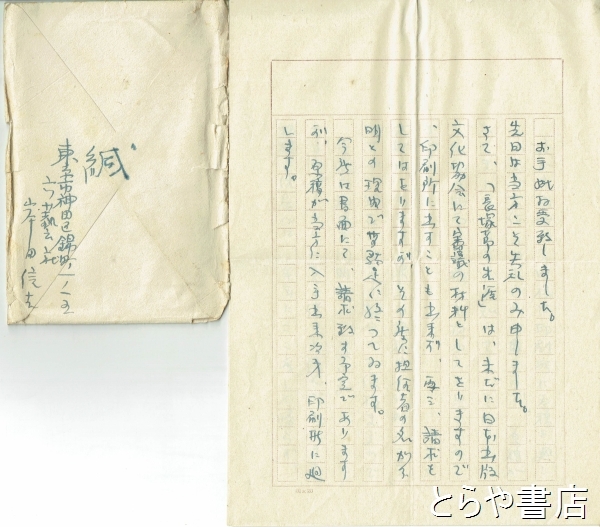 お手紙お受致しました。
先日は当方こそ失礼のみ申しました。
さて、「長塚節の生涯」は、未だに日本出版
文化協会にて審議の材料としてをりますので
、印刷所に出すことも出来ず、再三、請求を
してはをりますが、その度に担任者の名が不
明との理由で曖昧に終つてゐます。
今度は書面にて、請求致す予定であります
が、原稿が当方に入手出来次第、印刷所に廻
します。
緘
東京市神田区錦町一ノ五
六藝社
田信
とらや書店